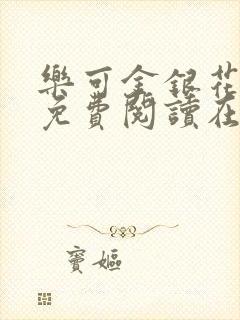 樂可金銀花
免費閱讀在
寶嫗